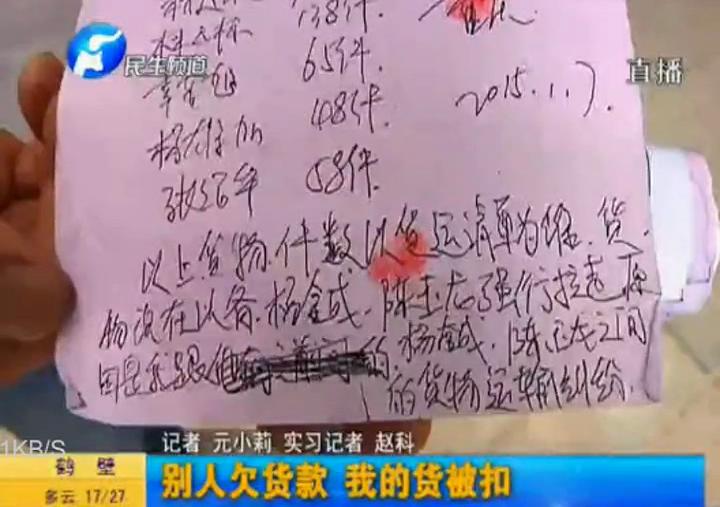 138件.
民生频道
直播
65件.
48件.
2015.1.7.
58件.
以上货物.件数以货运清单为准.货.
物现在以备.杨金成.陈玉龙强行拉走原
因是我跟他的.杨金成.陈玉龙之间
的货物运输纠纷.
1KB/S
记者 元小莉 实习记者 赵科
鹤 壁
别人欠货款 我的货被扣
多云 17/27